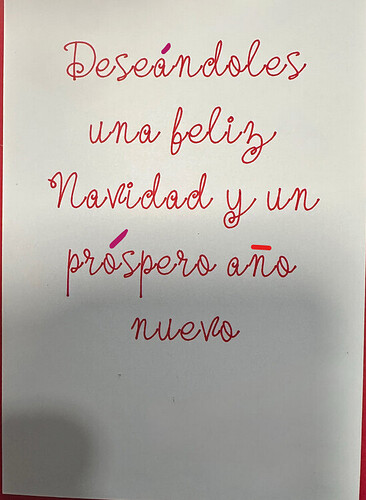 Deseándoles
una feliz
Navidad y un
próspero año
nuevo